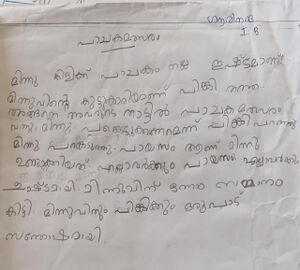 ശ്രീനന്ദ
I B
പാചകമത്സരം
മിന്നു കിളിക്ക് പാചകം നല്ല ഇഷ്ടമാണ്
മിന്നുവിന്റെ കൂട്ടുകാരിയാണ് പിങ്കി തത്ത.
അങ്ങനെ അവരുടെ നാട്ടിൽ പാചക മത്സരം
വന്നു. മിന്നു പങ്കെടുക്കണമെന്ന് പിങ്കി പറഞ്ഞു
മിന്നു പങ്കെടുത്തു. പായസം ആണ് മിന്നു
ഉണ്ടാക്കിയത്. എല്ലാവർക്കും പായസം എല്ലാവർക്കും
ഇഷ്ടമായി. മിന്നുവിന് ഒന്നാം സമ്മാനം
കിട്ടി. മിന്നുവിനും പിങ്കിക്കും ഒരുപാട്
സന്തോഷമായി.